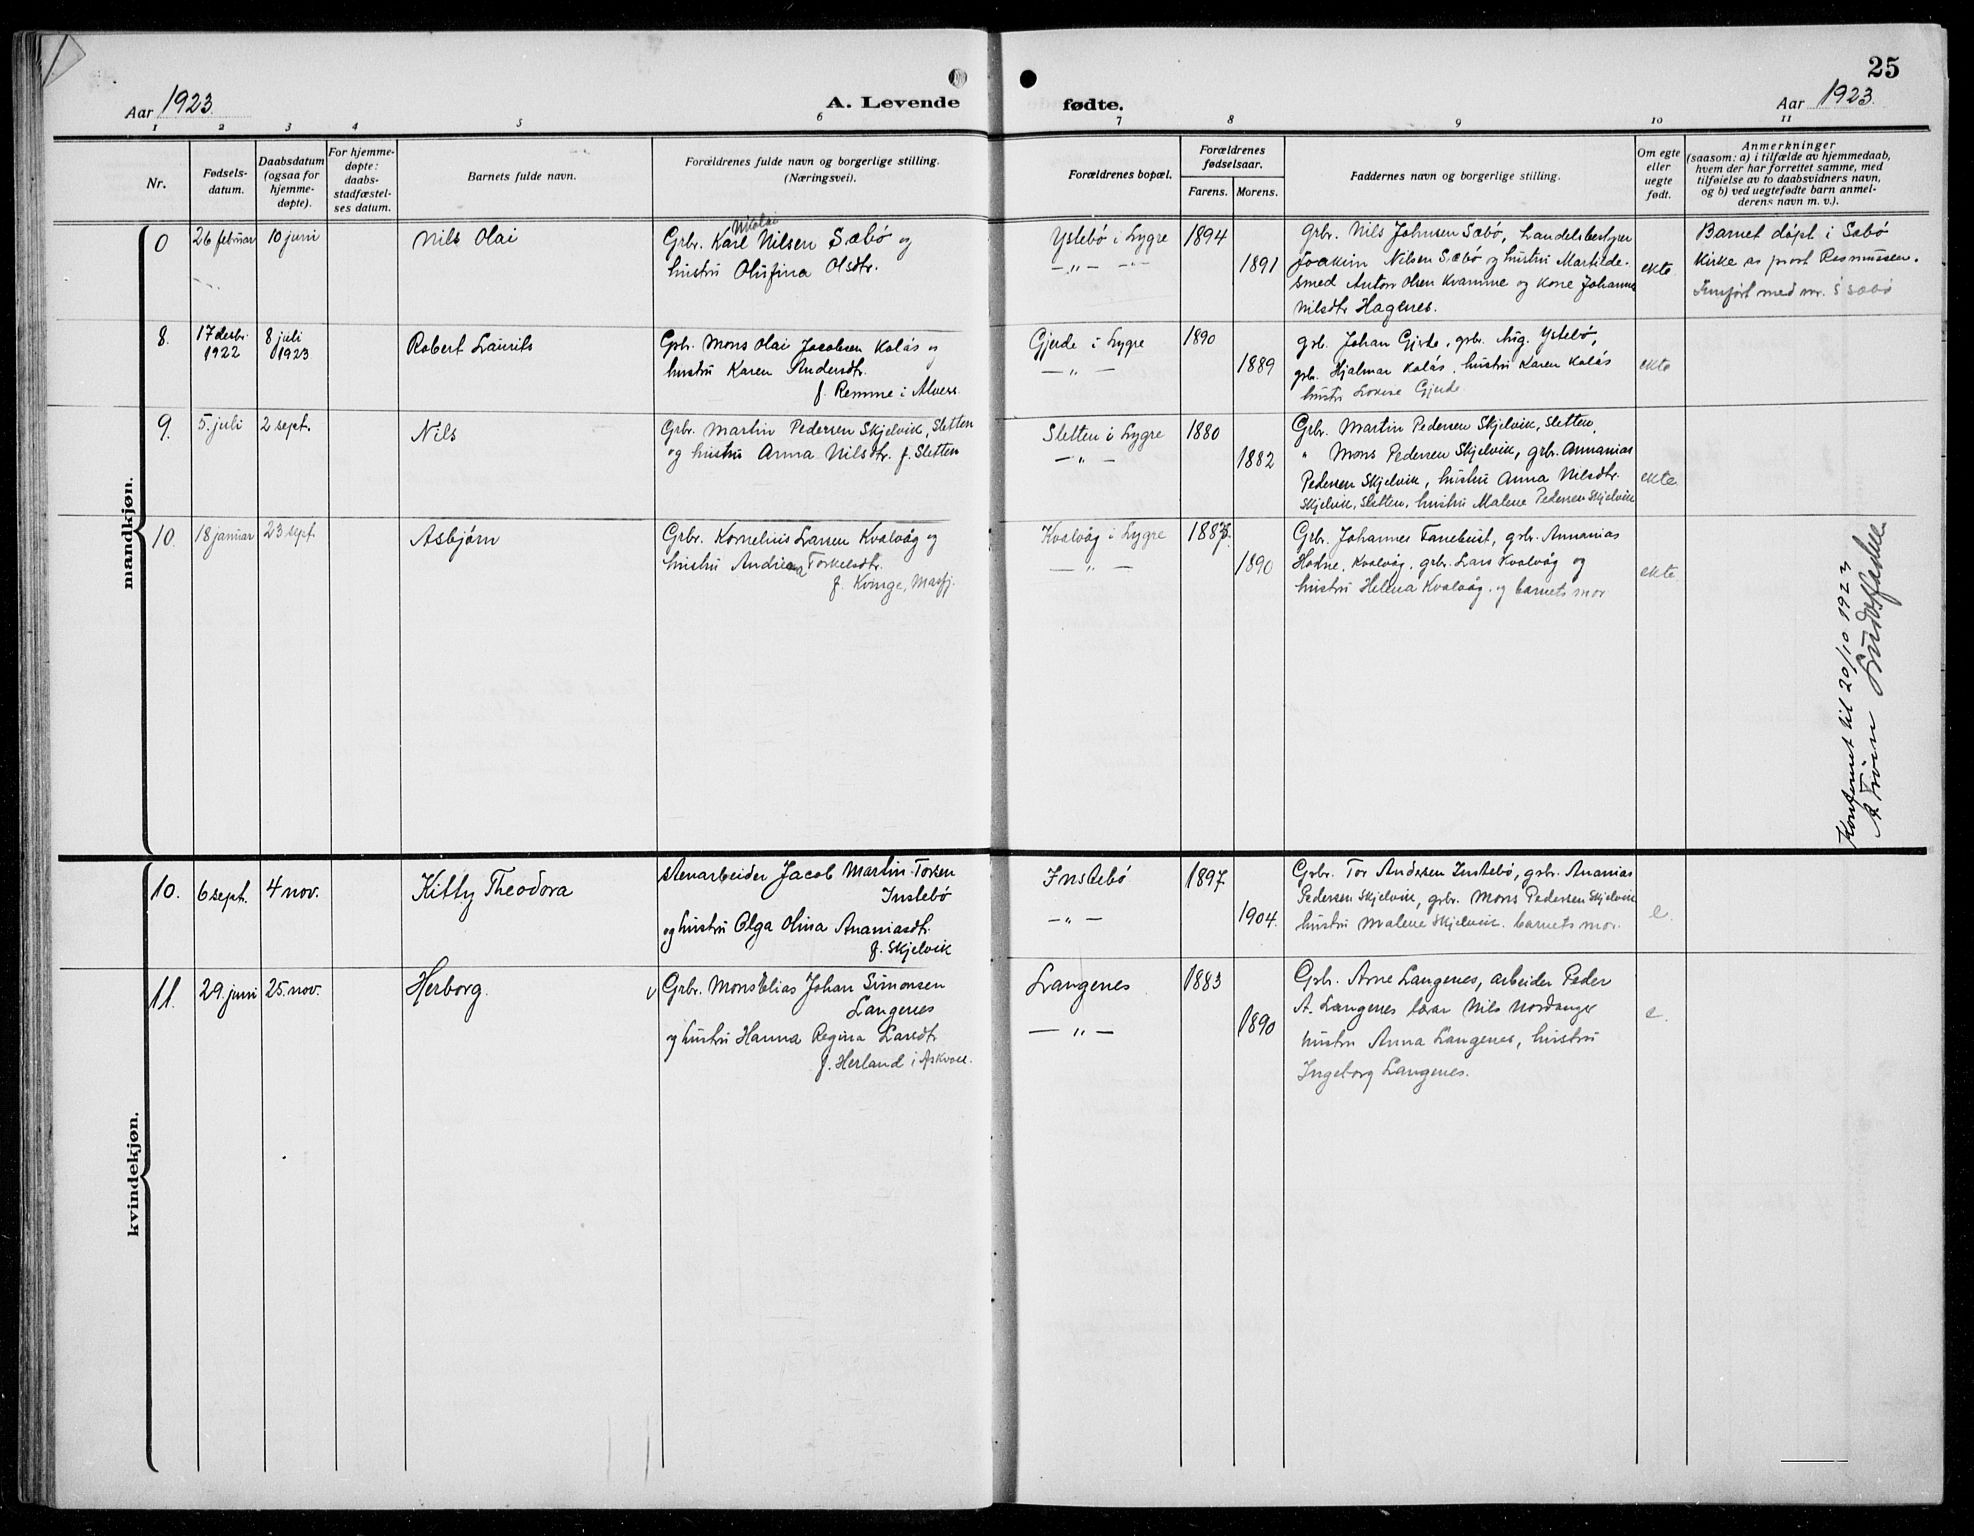 25
Aar 1923.
A. Levende
fødte.
Aar 1923.
1 2 3 4 5 6 7 8 9 10 11
Nr.
Fødsels-
datum.
Daabsdatum
(ogsaa for
hjemme-
døpte).
For hjemme-
døpte:
daabs-
stadfæstel-
ses datum.
Barnets fulde navn.
Forældrenes fulde navn og borgerlige stilling.
(Næringsvei).
Forældrenes bopæl.
Forældrenes
fødselsaar.
Farens. Morens.
Faddernes navn og borgerlige stilling.
Om egte
eller
uegte
født.
Anmerkninger
(saasom: a) i tilfælde av hjemmedaab,
hvem der har forrettet samme, med
tilføielse av to daabsvidners navn,
og b) ved uegtefødte barn anmel-
derens navn m. v.).
mandkjøn.
0
26 februar
10 juni
Nils Olai
Nicolai
Grbr. Karl Nilsen Sæbø og
hustru Olufina Olsdtr.
Ystebø i Lygre
— „ — — „ —
1894
1891
Grbr. Nils Johnsen Sæbø, handelsbestyrer
Joakim Nilsen Sæbø og hustru Martilde.
smed Anton Olsen Kvamme og kone Johanna
Nilsdtr Hagenes.
ekte
Barnet døpt i Sæbø
Kirke av prost Rasmussen.
Innført med nr. i Sæbø
8.
17 desbr.
1922
8 juli
1923
Robert Laurits
Grbr. Mons Olai Jacobsen Kolås og
hustru Karen Andersdtr.
f. Remme i Alvers.
Gjerde i Lygre
— „ —
1890
1889
grb. Johan Gjerde, grbr. Aug. Ystebø,
grb. Hjalmar Kolås, hustru Karen Kolås
hustru Lovise Gjerde.
ekte
9.
5. juli
2 sept.
Nils
Grbr. Martin Pedersen Skjelvik, Sletten
og hustru Anna Nilsdtr. f. Sletten
Sletten i Lygre
— „ —
1880
1882
Grbr. Martin Pedersen Skjelvik, Sletten,
„ Mons Pedersen Skjelvik, grbr. Annanias
Pedersen Skjelvik, hustru Anna Nilsdtr.
Skjelvik, Sletten, hustru Malene Pedersen Skjelvik
ekte
10.
18 januar
23 sept.
Asbjørn
Grbr. Kornelius Larsen Kvalvåg og
hustru Andrea Torkelsdtr.
f. Kvinge, Masfj.
Kvalvåg i Lygre
— „ —
1890
Grbr. Johannes Fanebust, grbr. Annanias
Hodne, Kvalvåg, grbr. Lars Kvalvåg og
hustru Helena Kvalvåg, og barnets mor
ekte
Konferert til 20/10 1923
kvindekjøn.
10.
6 sept.
4 nov.
Kitty Theodora
Stenarbeider Jacob Martin Torsen
Instebø
og hustru Olga Olina Ananiasdtr.
f. Skjelvik
Instebø
— „ —
1897
1904.
Grbr. Tor Andersen Instebø, grbr. Ananias
Pedersen Skjelvik, grbr. Mons Pedersen Skjelvik
hustru Malene Skjelvik. barnets mor.
e.
11.
29. juni
25. nov.
Herborg.
v Grbr. Mons Elias Johan Simonsen
Langenes
og hustru Hanna Regina Larsdtr
f. Herland i Askvoll.
Langenes
— „ —
1883
1890
Grbr. Arne Langenes, arbeider Peder
A. Langenes lærer Nils Nordanger
hustru Anna Langenes, hustru
Ingeborg Langenes.
e.